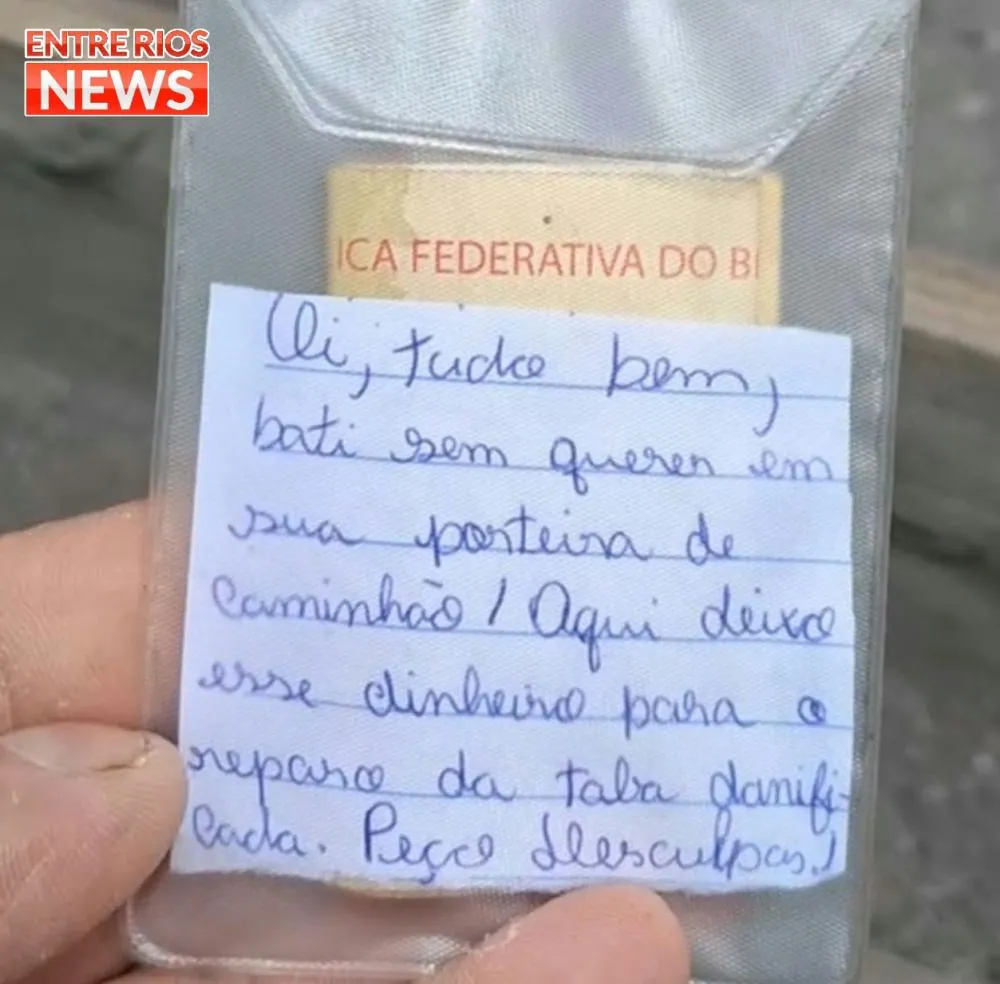 ENTRE RIOS
NEWS
ICA FEDERATIVA DO B
Oi, tudo bem,
bati sem querer em
sua porteira de
caminhão! Aqui deixo
esse dinheiro para o
reparo da taba danifi-
cada. Peço desculpas!